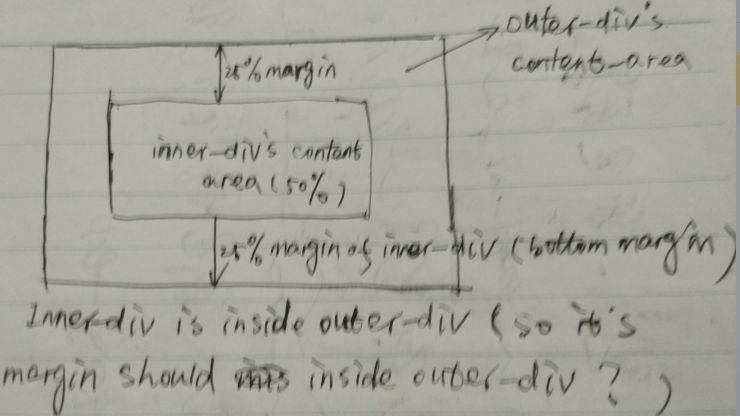 outer-div's
content-area
25% margin
inner-div's content
area (50%)
25% margin of inner-div (bottom margin)
Inner-div is inside outer-div (so it's
margin should inside outer-div ? )